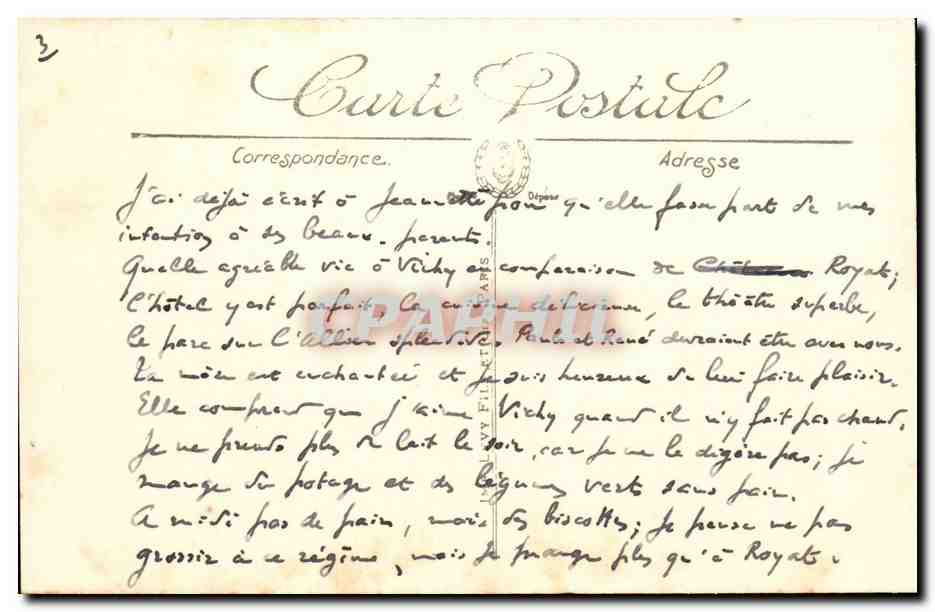 3
Carte Postale
Correspondance.
Adresse
J'ai déjà écrit à Jeannette pour qu'elle fasse part de mes
intentions à ses beaux-parents.
Quelle agréable vie à Vichy en comparaison de Royat;
l'hôtel y est parfait, la cuisine délicieuse, le théâtre superbe,
le parc sur l'Allier splendide. Paule et René devraient être avec nous.
Ta mère est enchantée et je suis heureux de lui faire plaisir.
Elle comprend que j'aime Vichy quand il n'y fait pas chaud.
Je ne prends plus de lait le soir, car je ne le digère pas; je
mange du potage et des légumes verts sans pain.
A midi pas de pain, mais des biscottes; je pense ne pas
grossir à ce régime, mais je mange plus qu'à Royat.
LEVY FILS ET PARIS
CPARHUI